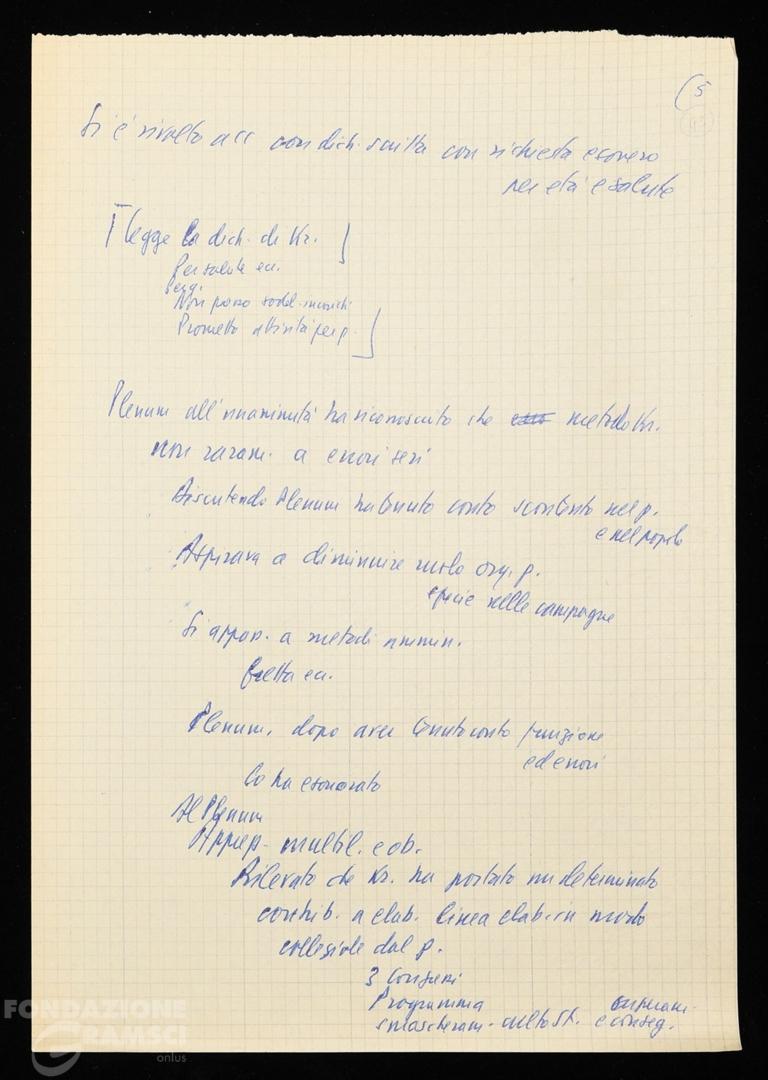 (5
Si è rivolto a CC con dich. scritta con richiesta esonero
per età e salute
Legge la dich. di Kr.
per salute ecc.
Non posso sodd. incarichi
Prometto attività per p.
Plenum all'unanimità ha riconosciuto che metodo Kr.
non raram. a errori seri
Discutendo Plenum ha tenuto conto scontento nel p.
e nel popolo
Aspirava a diminuire ruolo org. p.
specie nelle campagne
Si appog. a metodi ammin.
fretta ecc.
Plenum, dopo aver tenuto conto funzione
ed errori
lo ha esonerato
Al Plenum
Apprep. multil. e ob.
Rilevato che Kr. ha portato un determinato
contrib. a elab. linea elab. in modo
collegiale dal p.
3 Congressi
Programma
smascheram. culto St. e conseg.
FONDAZIONE
GRAMSCI
onlus